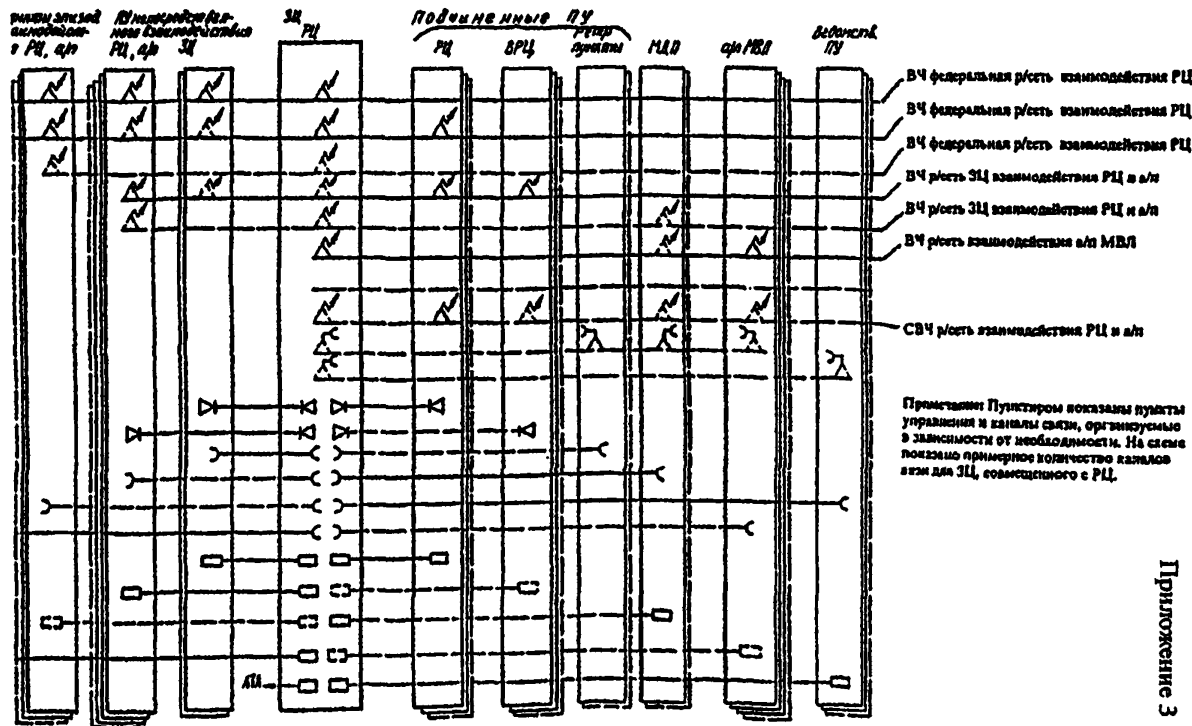 РЦ, а/п
РЦ, а/п
ЗЦ
ЗЦ
РЦ
Подчиненные ПУ
РЦ
ВРЦ
пункты
МДП
а/п МВЛ
Ведомств.
ПУ
ВЧ федеральная р/сеть взаимодействия РЦ
ВЧ федеральная р/сеть взаимодействия РЦ
ВЧ федеральная р/сеть взаимодействия РЦ
ВЧ р/сеть ЗЦ взаимодействия РЦ и а/п
ВЧ р/сеть ЗЦ взаимодействия РЦ и а/п
ВЧ р/сеть взаимодействия а/п МВЛ
СВЧ р/сеть взаимодействия РЦ и а/п
Примечание: Пунктиром показаны пункты
управления и каналы связи, организуемые
в зависимости от необходимости. На схеме
показано примерное количество каналов
вязи для ЗЦ, совмещенного с РЦ.
Приложение 3